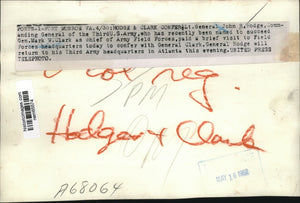 FORTS-1-FORT MONROE VA.4/30:HODGE & CLARK CONFER:Lt.General John R.Hodge,Commanding
General of the Third U.S.Army,who has recently been named to succeed
Gen.Mark W.Clark as chief of Army Field Forces,paid a brief visit to Field
Forces headquarters today to confer with General Clark.General Hodge will
return to his Third Army headquarters in Atlanta this evening.UNITED PRESS
TELEPHOTO.
2 col neg.
5PM
Hodge + Clark
A68064
MAY 1 0 1952